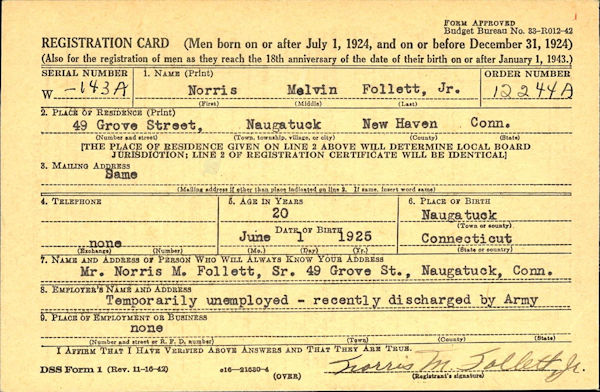 FORM APPROVED
Budget Bureau No. 33-R012-42
REGISTRATION CARD (Men born on or after July 1, 1924, and on or before December 31, 1924)
(Also for the registration of men as they reach the 18th anniversary of the date of their birth on or after January 1, 1943.)
SERIAL NUMBER 1. NAME (Print) ORDER NUMBER
W. -143A Norris Melvin Follett, Jr. 12244A
(First) (Middle) (Last)
2. PLACE OF RESIDENCE (Print)
49 Grove Street, Naugatuck New Haven Conn.
(Number and street) (Town, township, village, or city) (County) (State)
[THE PLACE OF RESIDENCE GIVEN ON LINE 2 ABOVE WILL DETERMINE LOCAL BOARD
JURISDICTION; LINE 2 OF REGISTRATION CERTIFICATE WILL BE IDENTICAL]
3. MAILING ADDRESS
Same
(Mailing address if other than place indicated on line 2. If same, insert word same)
4. TELEPHONE 5. AGE IN YEARS 6. PLACE OF BIRTH
20 Naugatuck
DATE OF BIRTH (Town or county)
none June 1 1925 Connecticut
(Exchange) (Number) (Mo.) (Day) (Yr.) (State or country)
7. NAME AND ADDRESS OF PERSON WHO WILL ALWAYS KNOW YOUR ADDRESS
Mr. Norris M. Follett, Sr. 49 Grove St., Naugatuck, Conn.
8. EMPLOYER'S NAME AND ADDRESS
Temporarily unemployed - recently discharged by Army
9. PLACE OF EMPLOYMENT OR BUSINESS
none
(Number and street or R. F. D. number) (Town) (County) (State)
I AFFIRM THAT I HAVE VERIFIED ABOVE ANSWERS AND THAT THEY ARE TRUE.
DSS Form 1 (Rev. 11-16-42) c16-21630-4 Norris M. Follett, Jr.
(OVER) (Registrant's signature)